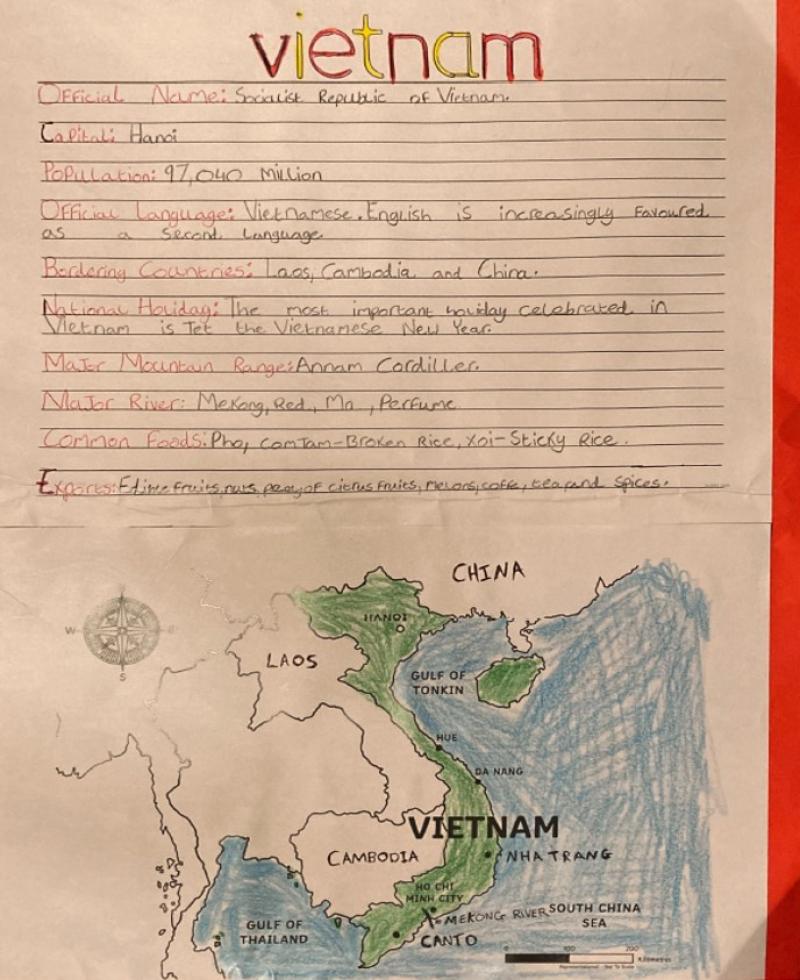 vietnam
Official Name: Socialist Republic of Vietnam.
Capital: Hanoi
Population: 97,040 Million
Official Language: Vietnamese. English is increasingly favoured
as a Second Language
Bordering Countries: Laos, Cambodia and China.
National Holiday: The most important holiday celebrated in
Vietnam is Tet the Vietnamese New Year.
Major Mountain Range: Annam Cordiller.
Major River: Mekong, Red, Ma, Perfume
Common Foods: Pho, ComTam-Broken Rice, Xoi-Sticky Rice.
Exports: fruits, nuts, of citrus fruits, melons, coffe, tea and spices.
CHINA
HANOI
W
E
S
LAOS
GULF OF
TONKIN
HUE
DA NANG
VIETNAM
CAMBODIA
NHA TRANG
HO CHI
MINH CITY
MEKONG RIVER
SOUTH CHINA
SEA
GULF OF
THAILAND
CANTO
100
200
Kilometres